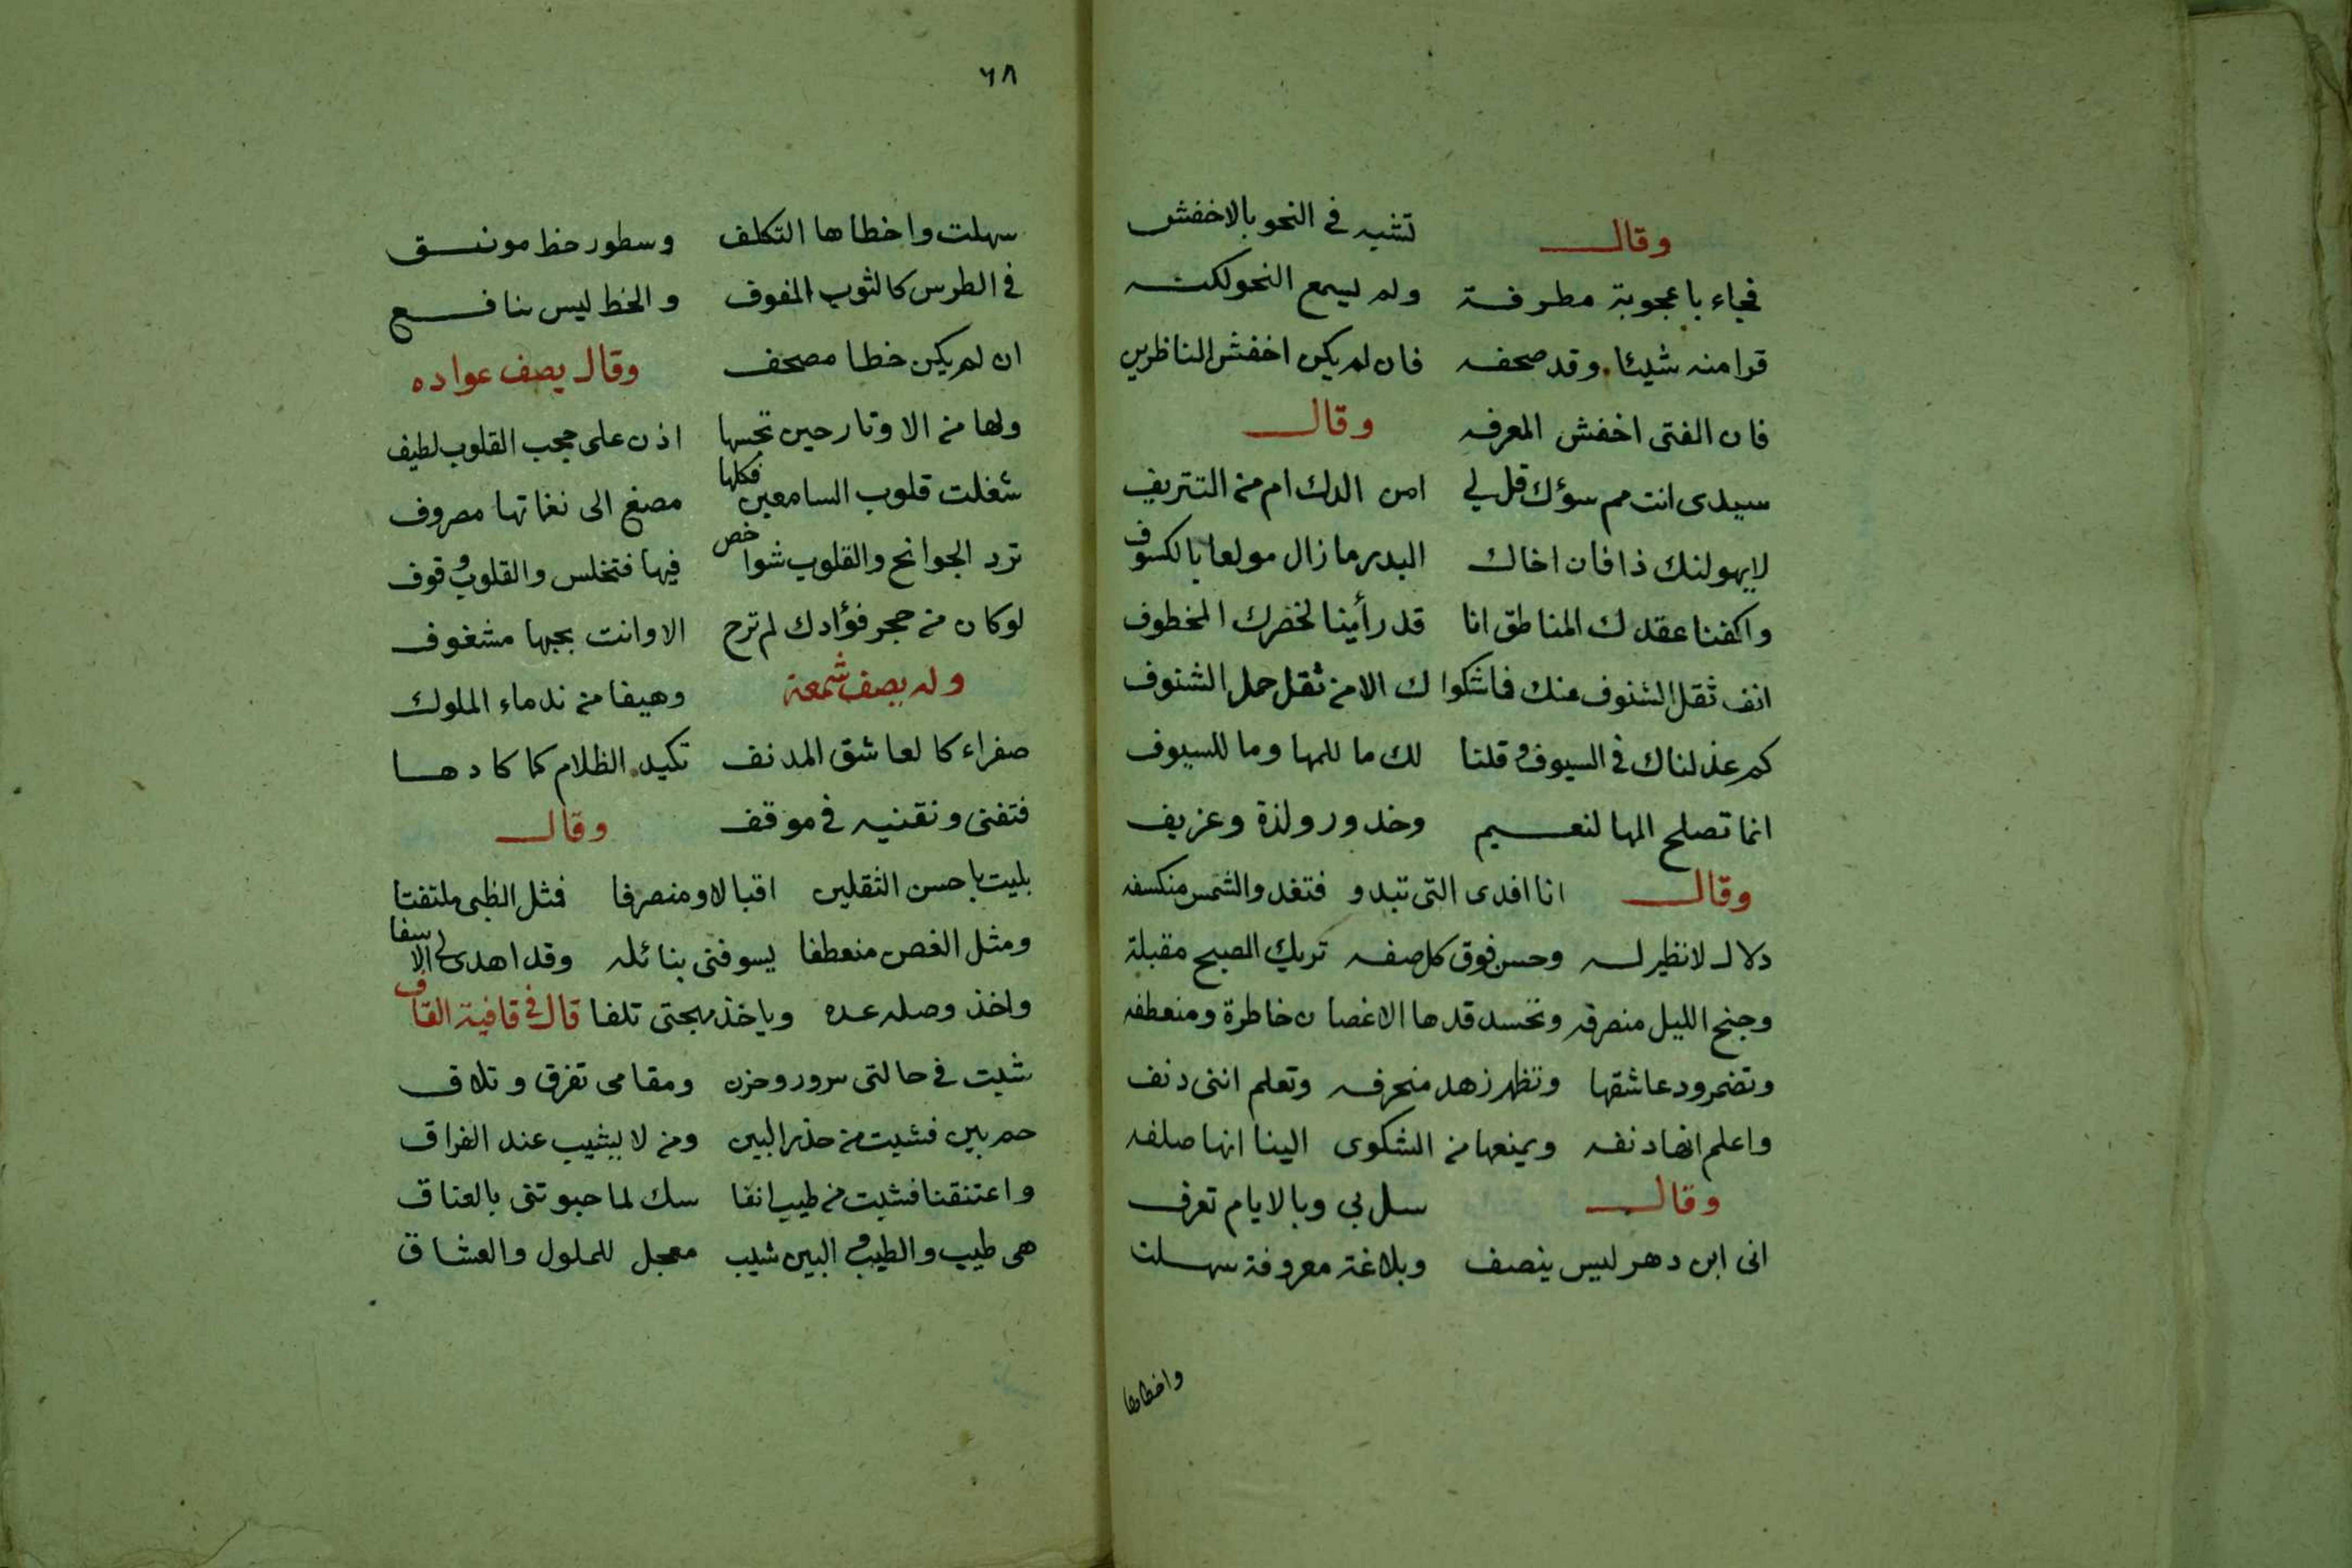 وقال تشبه في النحو بالاخفش
فجاء باعجوبة مطرفة ولم يسمع النحو لكنه
قرا منه شيئا وقد صحفه فان لم يكن اخفش الناظرين
فان الفتى اخفش المعرفه وقال
سيدي انت مم سؤك قل لي امن الدك ام من التتريف
لا يهولنك ذا فان اخاك البدر ما زال مولعا بالكسوف
واكفنا عقدك المناطق انا قد رأينا لخضرك المخطوف
انف ثقل الشنوف عنك فاشكوا لك الا من ثقل حمل الشنوف
كم عذلناك في السيوف وقلنا لك ما للمها وما للسيوف
انما تصلح المها لنعيم وخدور ولذة وعزيف
وقال انا افدى التى تبدو فتغد والشمس منكسفه
دلال لا نظير له وحسن فوق كل صفه تريك الصبح مقبلة
وجنح الليل منصرفه وتحسد قدها الاغصان خاطرة ومنعطفه
وتضمر ود عاشقها وتظهر زهد منحرفه وتعلم اننى دنف
واعلم انها دنفه ويمنعها من الشكوى الينا انها صلفه
وقال سل بي وبالايام تعرف
انى ابن دهر ليس ينصف وبلاغة معروفة سهلت
واخطاها
٦٨
سهلت واخطاها التكلف وسطور خط مونق
في الطرس كالثوب المفوف والخط ليس بنافع
ان لم يكن خطا مصحف وقال يصف عواده
ولها من الاوتار حين تحسها اذن على حجب القلوب لطيف
شغلت قلوب السامعين فكلها مصغ الى نغماتها مصروف
ترد الجوانح والقلوب شواخص فيها فتخلس والقلوب وقوف
لو كان من حجر فؤادك لم ترح الا وانت بحبها مشغوف
وله يصف شمعة وهيفا من ندماء الملوك
صفراء كالعاشق المدنف تكيد الظلام كما كادها
فتفنى وتفنيه في موقف وقال
بليت باحسن الثقلين اقبالا ومنصرفا فمثل الظبى ملتفتا
ومثل الغصن منعطفا يسوفنى بنائله وقد اهدى لي الاسفا
واخذ وصله عده وياخذ مهجتى تلفا قال في قافية القاف
شيت في حالتى سرور وحزن ومقامى تفرق وتلاق
حم بين فشيت من حذر البين ومن لا يشيب عند الفراق
واعتنقنا فشيت من طيب انفا سك لما حبوتنى بالعناق
هى طيب والطيب والبين شيب معجل للملول والعشاق